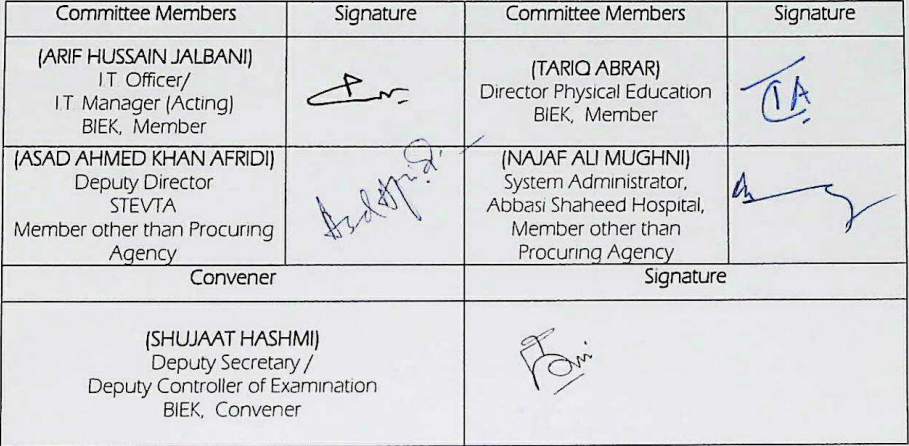 Committee Members Signature Committee Members Signature
(ARIF HUSSAIN JALBANI)
I.T. Officer/
I.T. Manager (Acting)
BIEK, Member
(TARIQ ABRAR)
Director Physical Education
BIEK, Member
TA
(ASAD AHMED KHAN AFRIDI)
Deputy Director
STEVTA
Member other than Procuring
Agency
(NAJAF ALI MUGHNI)
System Administrator,
Abbasi Shaheed Hospital,
Member other than
Procuring Agency
Convener Signature
(SHUJAAT HASHMI)
Deputy Secretary /
Deputy Controller of Examination
BIEK, Convener